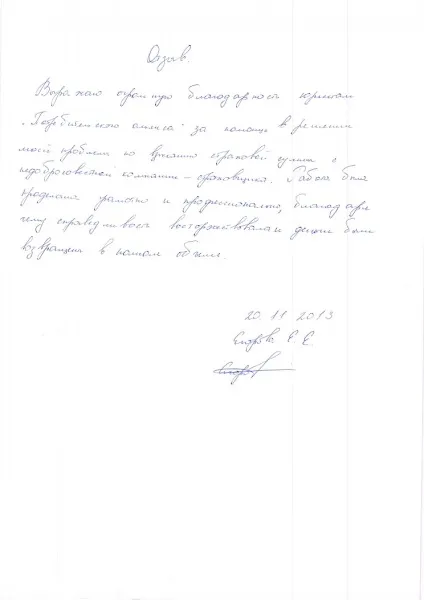 Отзыв.
Выражаю огромную благодарность юристам
"Потребительского альянса" за помощь в решении
моей проблемы по взысканию страховой суммы с
недобросовестной компании-страховщика. Работа была
проделана грамотно и профессионально, благодаря
чему справедливость восторжествовала и деньги были
возвращены в полном объеме.
20.11.2013
Егоров. Е. Е.